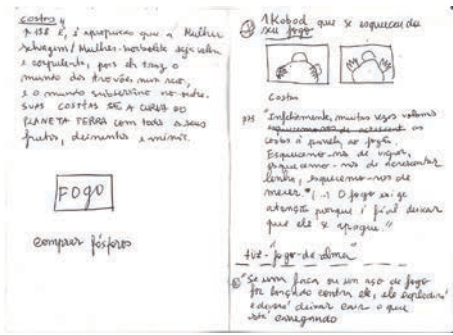 costas
p.138 é, é apropriado que a Mulher
selvagem/Mulher-borboleta seja velha
e corpulenta, pois ela traz o
mundo dos trovões num seio,
e o mundo subterrâneo no outro.
SUAS COSTAS SÃO A CURVA DO
PLANETA TERRA com todos os seus
frutos, alimentos e animais.
FOGO
comprar fósforos
que se esqueceu do
seu fogo
Costas
"Infelizmente, muitas vezes voltamos
as
costas à panela, ao fogão.
Esquecemo-nos de vigiar,
esquecemo-nos de acrescentar
lenha, esquecemo-nos de
mexer. (...) O fogo exige
atenção porque é fácil deixar
que ele se apague."
fogo-da-alma
"Se uma faca ou um
de fogo
for lançado contra ele, ele explodirá
e deverá deixar cair o que
está carregando